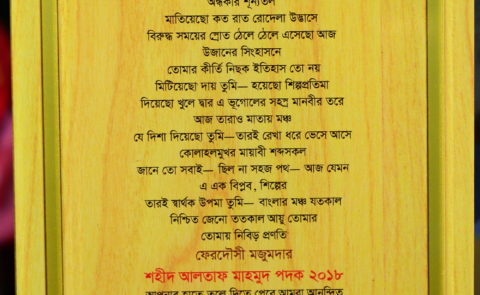 অন্ধকার শূন্যতল
মাতিয়েছো কত রাত রোদেলা উদ্ভাসে
বিরুদ্ধ সময়ের স্রোত ঠেলে ঠেলে এসেছো আজ
উজানের সিংহাসনে
তোমার কীর্তি নিছক ইতিহাস তো নয়
মিটিয়েছো দায় তুমি— হয়েছো শিল্পপ্রতিমা
দিয়েছো খুলে দ্বার এ ভূগোলের সহস্র মানবীর তরে
আজ তারাও মাতায় মঞ্চ
যে দিশা দিয়েছো তুমি—তারই রেখা ধরে ভেসে আসে
কোলাহলমুখর মায়াবী শব্দসকল
জানে তো সবাই— ছিল না সহজ পথ— আজ যেমন
এ এক বিপ্লব, শিল্পের
তারই স্বার্থক উপমা তুমি— বাংলার মঞ্চ যতকাল
নিশ্চিত জেনো ততকাল আয়ু তোমার
তোমায় নিবিড় প্রণতি
ফেরদৌসী মজুমদার
শহীদ আলতাফ মাহমুদ পদক ২০১৮
আপনার হাতে তুলে দিতে পেরে আমরা আনন্দিত